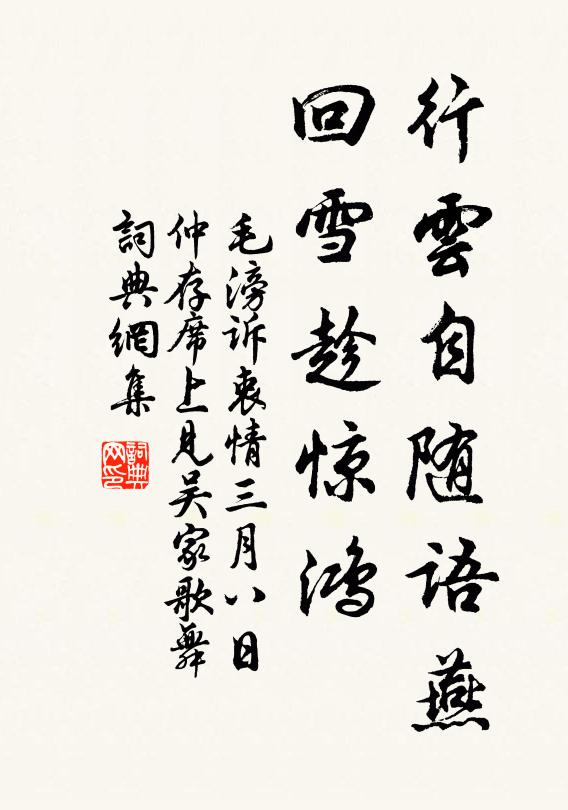 行雲自随語燕
回雪趁惊鴻
毛滂诉衷情三月八日
仲存席上見吴家歌舞
詞典網集
詞典网印